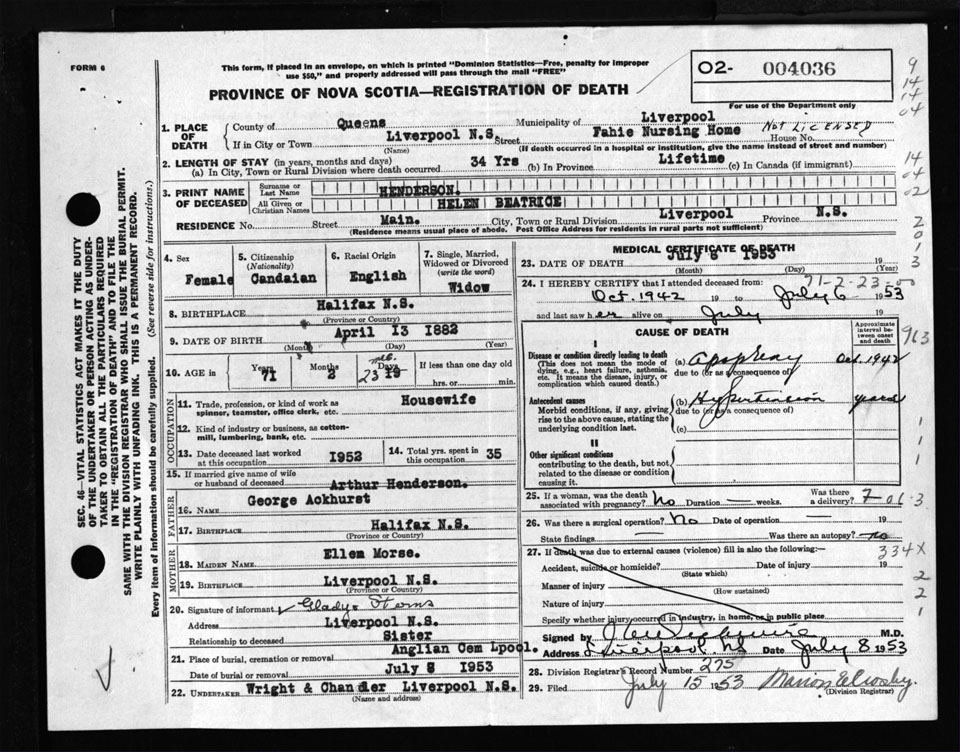 FORM 6
This form, if placed in an envelope, on which is printed "Dominion Statistics—Free, penalty for improper
use $50," and properly addressed will pass through the mail "FREE"
PROVINCE OF NOVA SCOTIA—REGISTRATION OF DEATH
O2- 004036
For use of the Department only
SEC. 46—VITAL STATISTICS ACT MAKES IT THE DUTY
OF THE UNDERTAKER OR PERSON ACTING AS UNDER-
TAKER TO OBTAIN ALL THE PARTICULARS REQUIRED
IN THE "REGISTRATION OF DEATH" AND TO FILE THE
SAME WITH THE DIVISION REGISTRAR WHO SHALL ISSUE THE BURIAL PERMIT.
WRITE PLAINLY WITH UNFADING INK. THIS IS A PERMANENT RECORD.
Every item of information should be carefully supplied. (See reverse side for instructions.)
1. PLACE OF DEATH
County of Queens Municipality of Liverpool
If in City or Town Liverpool N.S. Street Fahie Nursing Home House No. Not Licensed
(Name) (If death occurred in a hospital or institution, give the name instead of street and number)
2. LENGTH OF STAY (in years, months and days)
(a) In City, Town or Rural Division where death occurred 34 Yrs (b) In Province Lifetime (c) In Canada (if immigrant)
3. PRINT NAME OF DECEASED
Surname or Last Name HENDERSON.
All Given or Christian Names HELEN BEATRICE
RESIDENCE No. Street Main. City, Town or Rural Division Liverpool Province N.S.
(Residence means usual place of abode. Post Office Address for residents in rural parts not sufficient)
4. Sex Female
5. Citizenship (Nationality) Candaian
6. Racial Origin English
7. Single, Married, Widowed or Divorced (write the word) Widow
8. BIRTHPLACE Halifax N.S.
(Province or Country)
9. DATE OF BIRTH April 13 1882
(Month) (Day) (Year)
10. AGE in Years 71 Months 2 23 If less than one day old
hrs. or min.
OCCUPATION
11. Trade, profession, or kind of work as Housewife
spinner, teamster, office clerk, etc.
12. Kind of industry or business, as cotton-
mill, lumbering, bank, etc.
13. Date deceased last worked at this occupation 1952
14. Total yrs. spent in this occupation 35
15. If married give name of wife
or husband of deceased Arthur Henderson.
FATHER
16. NAME George Aokhurst
17. BIRTHPLACE Halifax N.S.
(Province or Country)
MOTHER
18. MAIDEN NAME Ellem Morse.
19. BIRTHPLACE Liverpool N.S.
(Province or Country)
20. Signature of informant Gladys
Address Liverpool N.S.
Relationship to deceased Sister
21. Place of burial, cremation or removal Anglian Cem Lpool.
Date of burial or removal July 8 1953
22. UNDERTAKER Wright & Chandler Liverpool N.S.
(Name and address)
MEDICAL CERTIFICATE OF DEATH
23. DATE OF DEATH July 6 1953
(Month) (Day) (Year)
71-2-23-00
24. I HEREBY CERTIFY that I attended deceased from:
Oct. 1942 19 to July 6 1953
and last saw her alive on July 19
CAUSE OF DEATH
Approximate interval between onset and death
I
Disease or condition directly leading to death
(This does not mean the mode of
dying, e.g., heart failure, asthenia,
etc. It means the disease, injury, or
complication which caused death.)
(a) Apoplexy Oct. 1942
due to (or as a consequence of)
Antecedent causes
Morbid conditions, if any, giving
rise to the above cause, stating the
underlying condition last.
(b) Hypertension years
due to (or as a consequence of)
(c)
II
Other significant conditions
contributing to the death, but not
related to the disease or condition
causing it.
25. If a woman, was the death associated with pregnancy? No Duration — weeks. Was there a delivery?
26. Was there a surgical operation? No Date of operation — 19
State findings — Was there an autopsy? no
27. If death was due to external causes (violence) fill in also the following:—
334X
Accident, suicide or homicide? Date of injury 19
(State which)
Manner of injury
(How sustained)
Nature of injury
Specify whether injury occurred in industry, in home, or in public place
Signed by M.D.
Address Liverpool NS Date July 8 1953
28. Division Registrar's Record Number 275
29. Filed July 15 1953 Marion E. Crosby.
(Division Registrar)
9
14
14
04
14
04
02
2
0
1
3
963
1
1
1
2
2
1